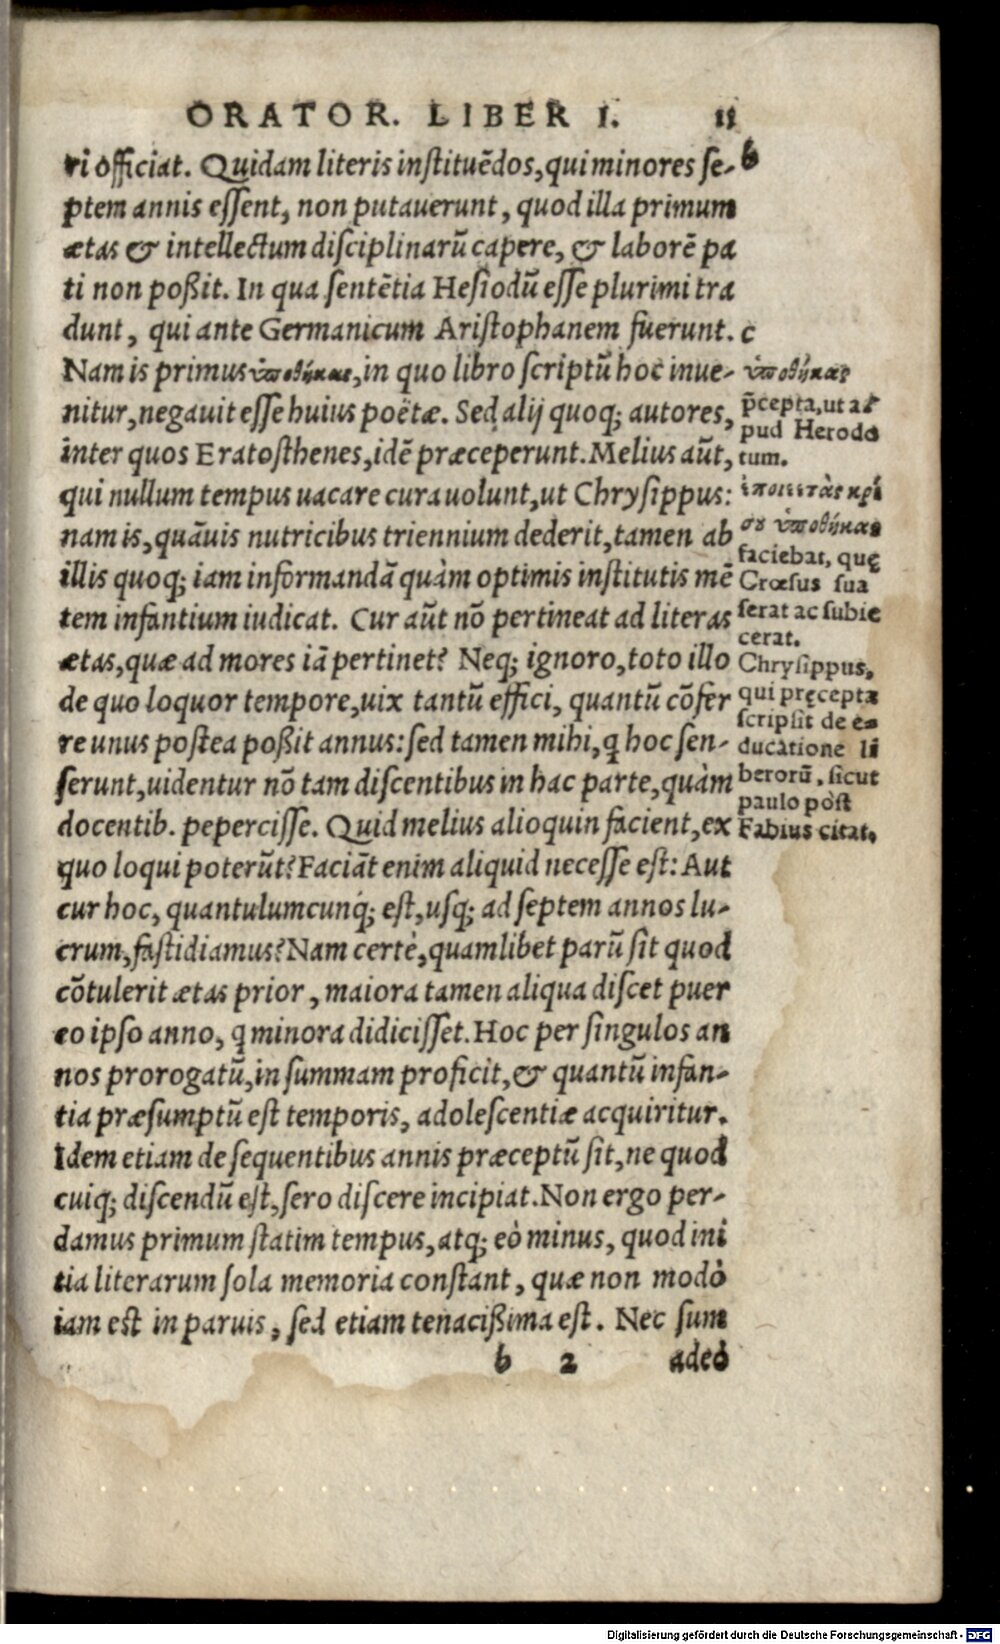 ORATOR. LIBER I. 11
ri officiat. Quidam literis instituẽdos, qui minores se-
b
ptem annis essent, non putauerunt, quod illa primum
ætas & intellectum disciplinarũ capere, & laborẽ pa
ti non poßit. In qua sentẽtia Hesiodũ esse plurimi tra
dunt, qui ante Germanicum Aristophanem fuerunt.
c
Nam is primus ὑποθήκας, in quo libro scriptũ hoc inue-
nitur, negauit esse huius poëtæ. Sed alij quoq; autores,
inter quos Eratosthenes, idẽ præceperunt. Melius aũt,
qui nullum tempus uacare cura uolunt, ut Chrysippus:
nam is, quãuis nutricibus triennium dederit, tamen ab
illis quoq; iam informandã quàm optimis institutis mẽ
tem infantium iudicat. Cur aũt nõ pertineat ad literas
ætas, quæ ad mores iã pertinet? Neq; ignoro, toto illo
de quo loquor tempore, uix tantũ effici, quantũ cõfer
re unus postea poßit annus: sed tamen mihi, q̃ hoc sen-
serunt, uidentur nõ tam discentibus in hac parte, quàm
docentib. pepercisse. Quid melius alioquin facient, ex
quo loqui poterũt? Faciãt enim aliquid necesse est: Aut
cur hoc, quantulumcunq́; est, usq; ad septem annos lu-
crum, fastidiamus? Nam certè, quamlibet parũ sit quod
cõtulerit ætas prior, maiora tamen aliqua discet puer
eo ipso anno, q̃ minora didicisset. Hoc per singulos an
nos prorogatũ, in summam proficit, & quantũ infan-
tia præsumptũ est temporis, adolescentiæ acquiritur.
Idem etiam de sequentibus annis præceptũ sit, ne quod
cuiq; discendũ est, sero discere incipiat. Non ergo per-
damus primum statim tempus, atq; eò minus, quod ini
tia literarum sola memoria constant, quæ non modò
iam est in paruis, sed etiam tenacißima est. Nec sum
b 2 adeò
ὑποθήκας
p̃cepta, ut a-
pud Herodo
tum.
κρί
σου ὑποθήκας
faciebat, quę
Crœsus sua
serat ac subie
cerat.
Chrysippus,
qui pręcepta
scripsit de e-
ducatione li
berorũ, sicut
paulo pòst
Fabius citat.
Digitalisierung gefördert durch die Deutsche Forschungsgemeinschaft - DFG